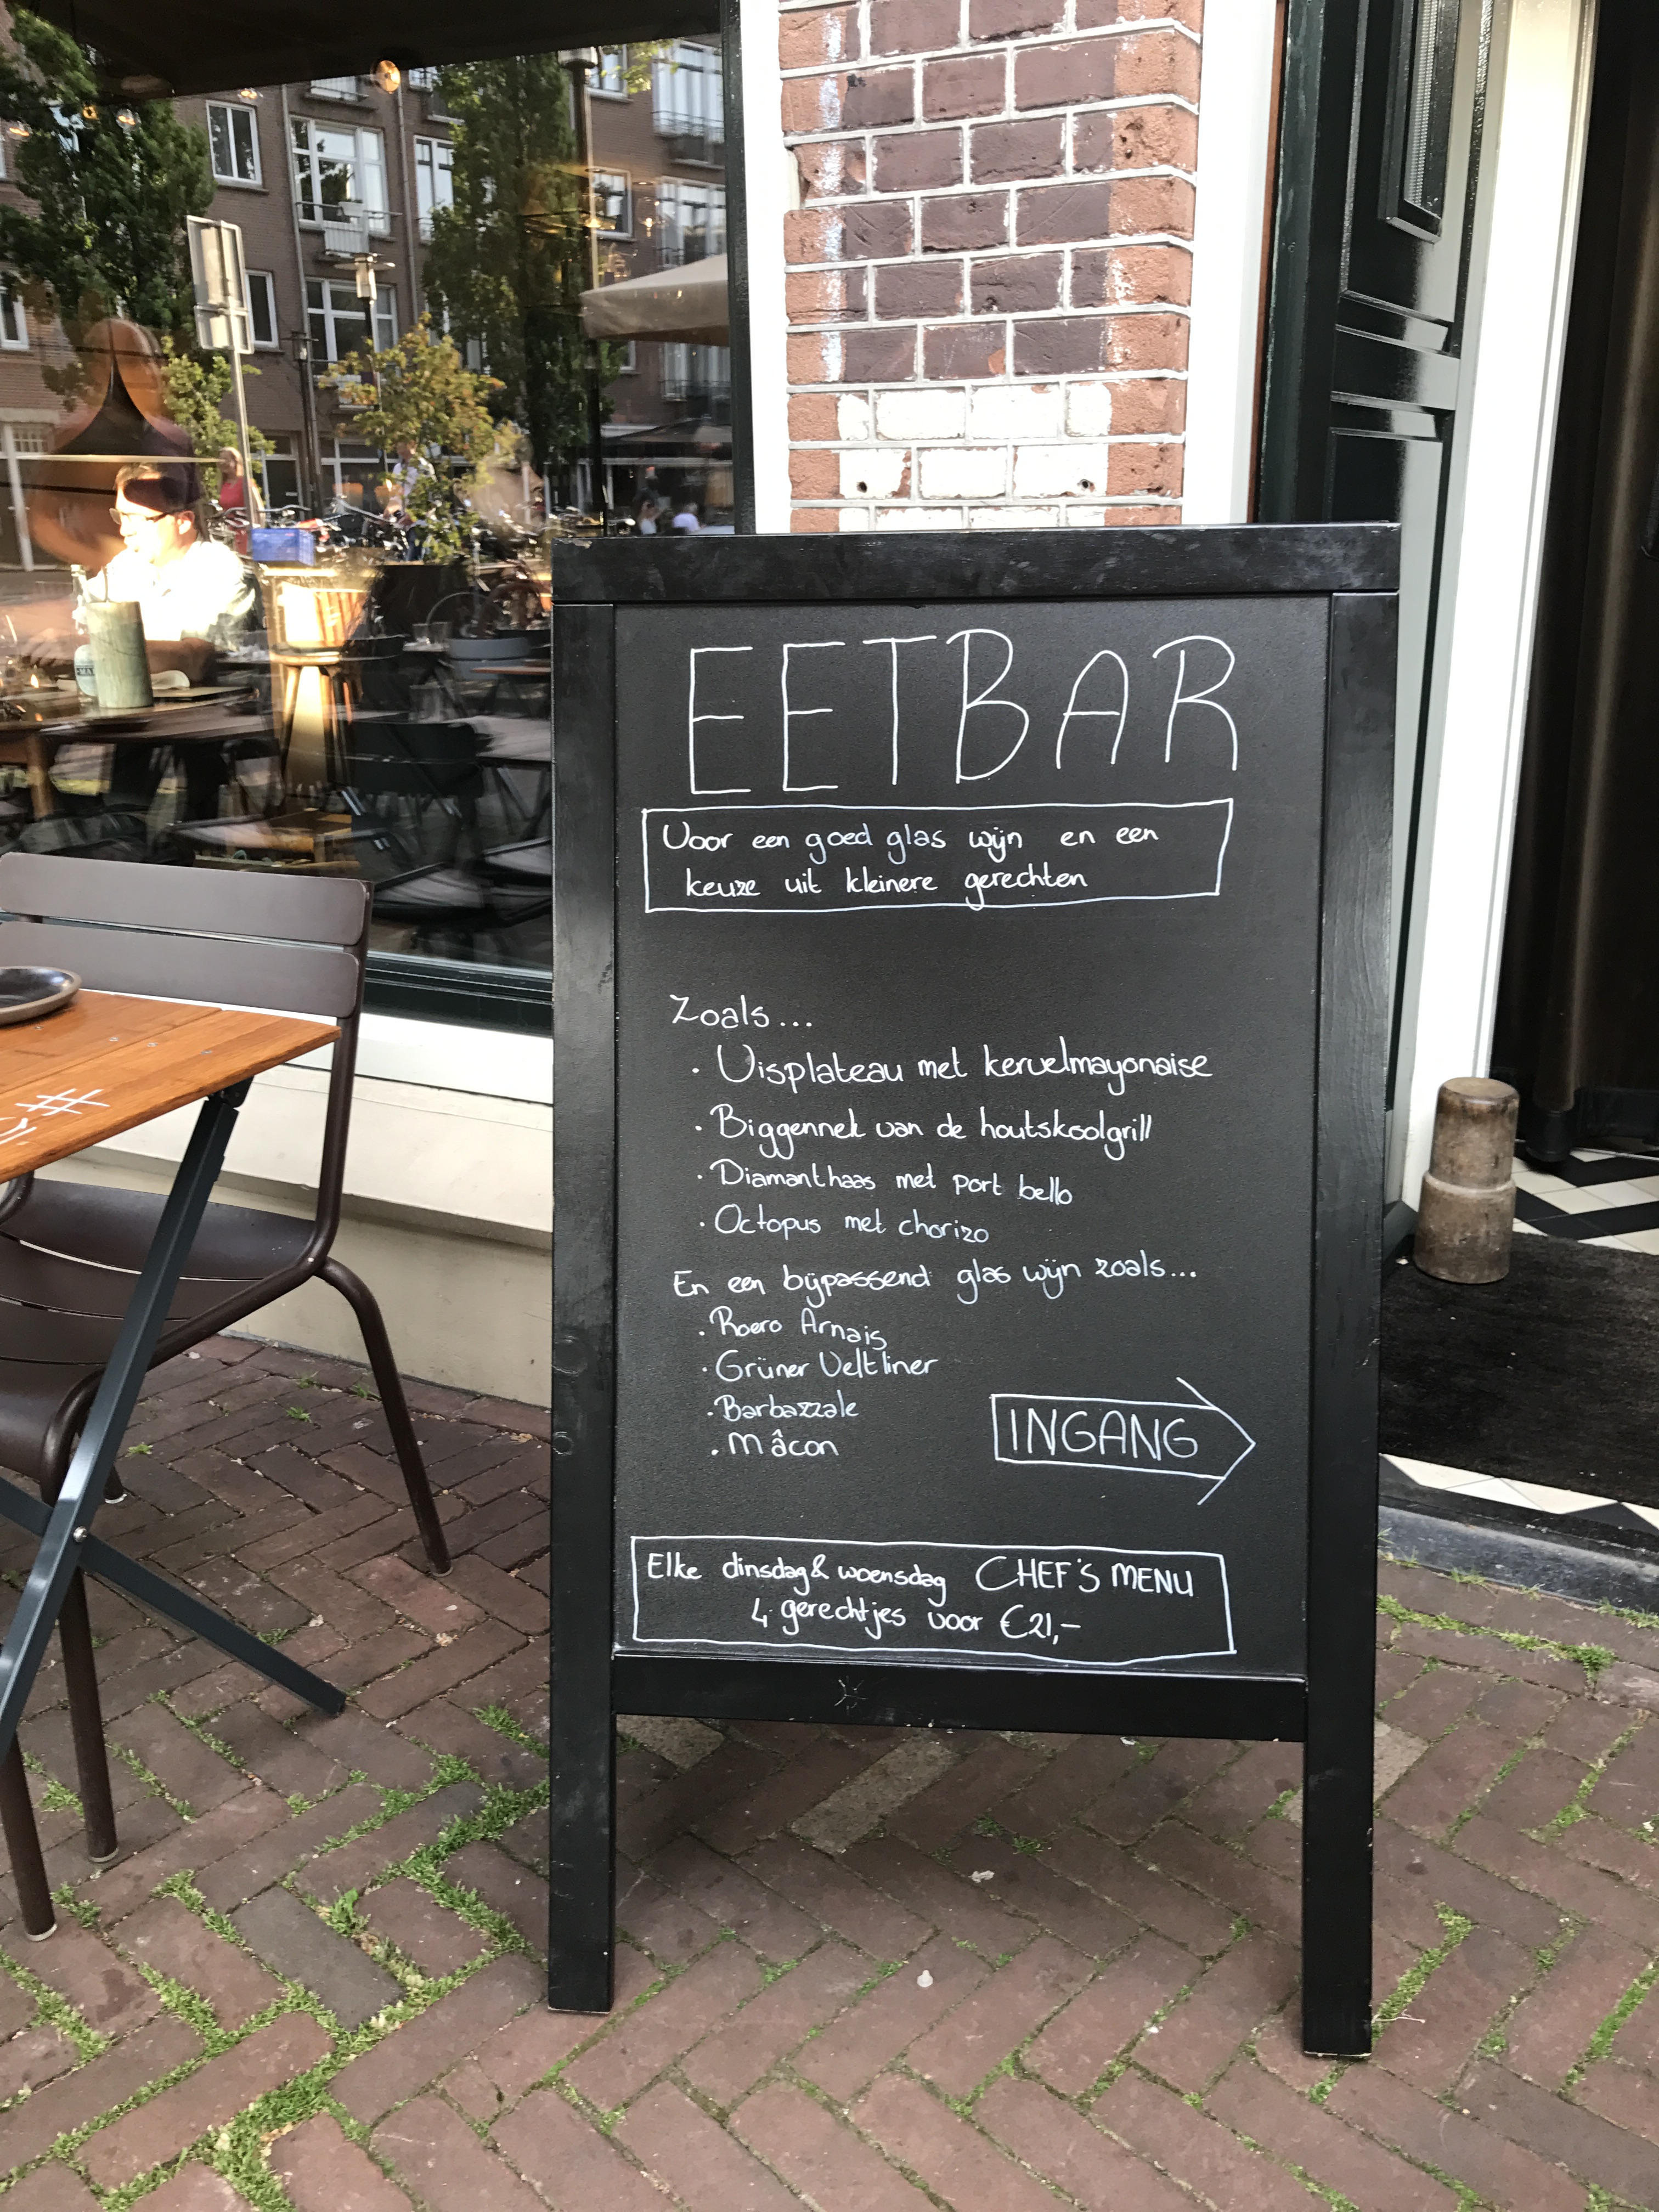 EETBAR
Voor een goed glas wijn en een
keuze uit kleinere gerechten
Zoals...
· Visplateau met kervelmayonaise
· Biggennek van de houtskoolgrill
· Diamanthaas met port bello
· Octopus met chorizo
En een bijpassend glas wijn zoals...
· Roero Arnais
· Grüner Veltliner
· Barbazzale
· Mâcon
INGANG
Elke dinsdag & woensdag CHEF'S MENU
4 gerechtjes voor €21,-